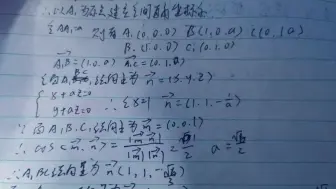 ∴以A₁为原点建立空间直角坐标系
设AA₁=a 则有A₁(0.0.0) B(1.0.a) C(0.1.a)
B₁(1.0.0) C₁(0.1.0)
A₁B=(1.0.a) A₁C=(0.1.a)
设面A₁BC法向量为n=(x.y.z)
{x+az=0
y+az=0 ∴令z=1 n=(1.1.-1/a)
∴面A₁B₁C₁法向量为m=(0.0.1)
∴cos<m.n>=|m·n|/|m||n|= a=
∴A₁BC法向量为n(1,1,-